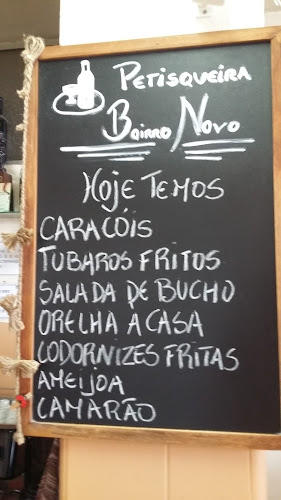 PETISQUEIRA
BAIRRO NOVO
HOJE TEMOS
CARACOIS
TUBAROS FRITOS
SALADA DE BUCHO
ORELHA A CASA
CODORNIZES FRITAS
AMEIJOA
CAMARÃO